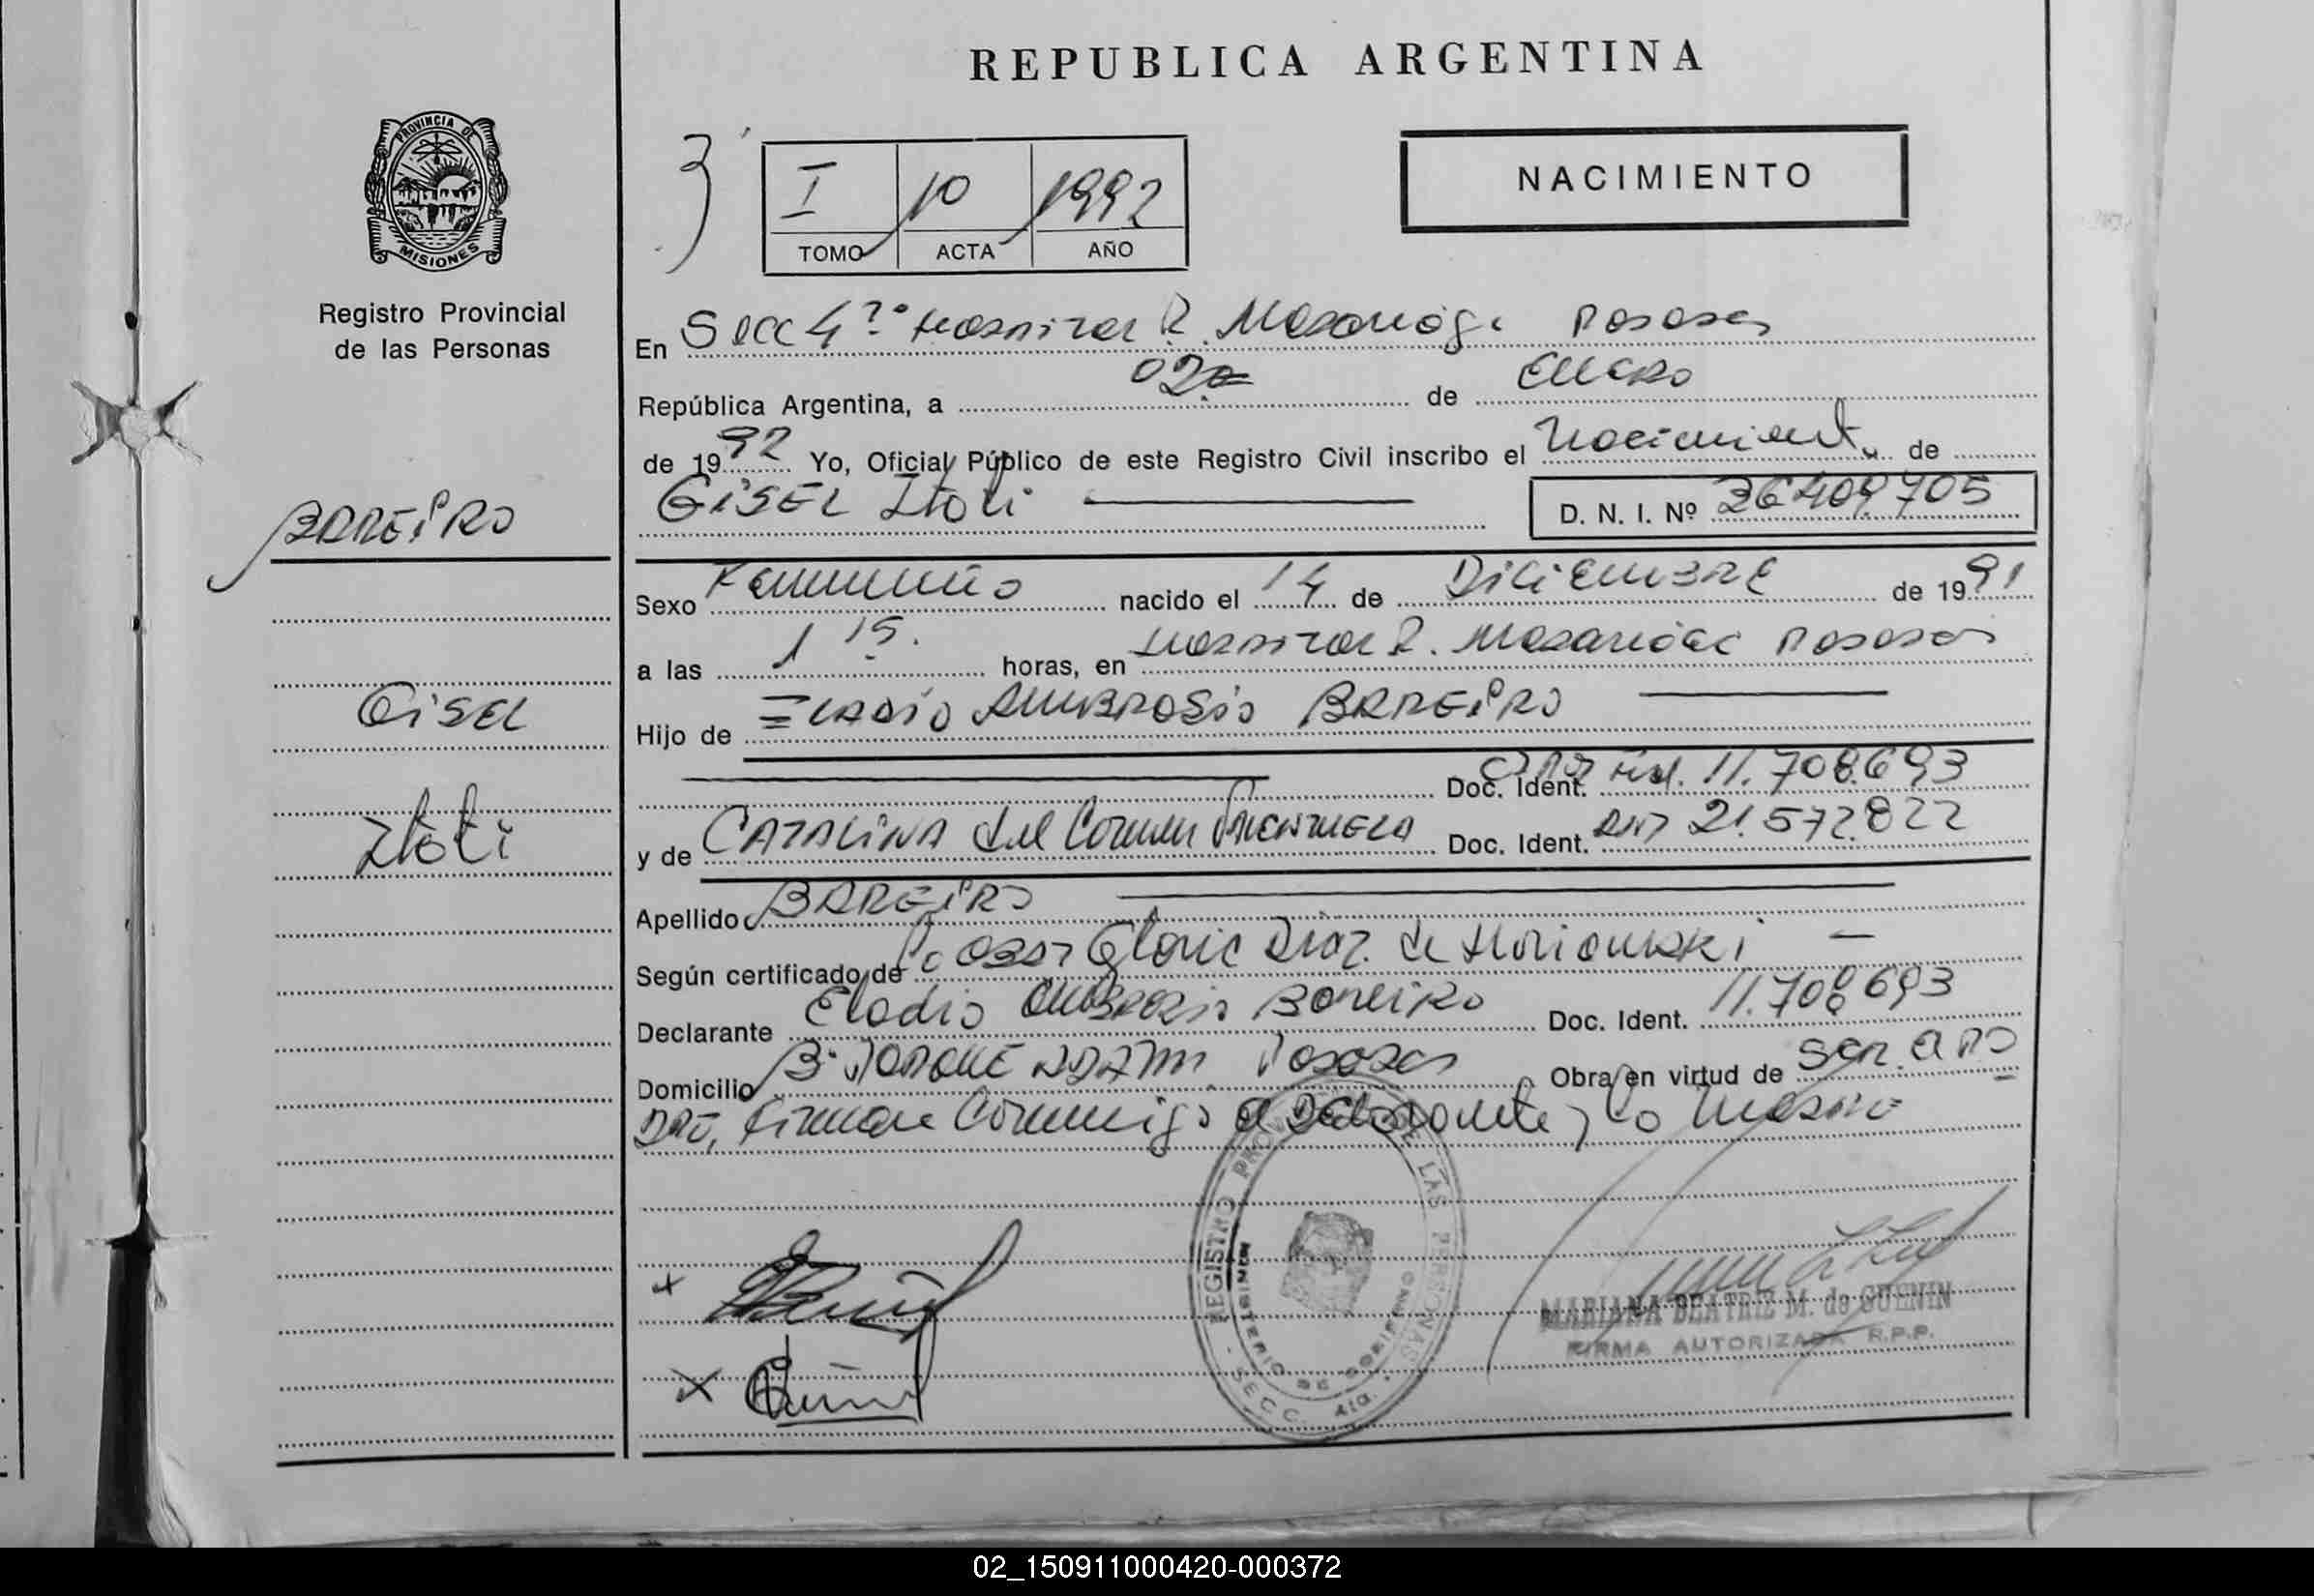 REPUBLICA ARGENTINA
PROVINCIA DE
MISIONES
Registro Provincial
de las Personas
I 10 1992
TOMO ACTA AÑO
NACIMIENTO
En Secc 4ª Hospital R. Madariaga Posadas
República Argentina, a 02 de Enero
de 1992 Yo, Oficial Público de este Registro Civil inscribo el Nacimiento de
GISEL Itatí D. N. I. Nº 36409705
BAREIRO
Gisel
Itatí
Sexo Femenino nacido el 14 de Diciembre de 1991
a las 1 15. horas, en Hospital R. Madariaga Posadas
Hijo de Eladio Ambrosio BAREIRO
Doc. Ident. 11.708.693
y de CATALINA del Carmen Doc. Ident. DNI 21.572.822
Apellido BAREIRO
Según certificado de Gloria Diaz de
Declarante Eladio Ambrosio Bareiro Doc. Ident. 11.708693
Domicilio Bº Posadas Obra en virtud de
Firman Conmigo el Declarante y la Madre
REGISTRO PROVINCIAL DE LAS PERSONAS
MINISTERIO DE GOBIERNO
SECC. 4ta.
MARIANA BEATRIZ M. de GUENIN
FIRMA AUTORIZADA R.P.P.
02_150911000420-000372